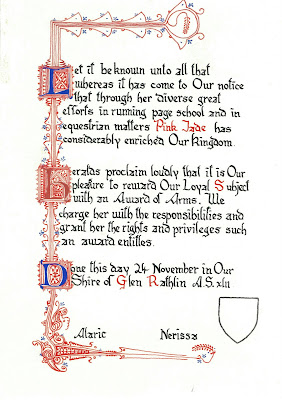 Let it be known unto all that
whereas it has come to Our notice
that through her diverse great
efforts in running page school and in
equestrian matters Pink Jade has
considerably enriched Our Kingdom.
Heralds proclaim loudly that it is Our
pleasure to reward Our Loyal Subject
with an Award of Arms. We
charge her with the responsibilities and
grant her the rights and privileges such
an award entitles.
Done this day 24 November in Our
Shire of Glen Rathlin A.S. xlii
Alaric Nerissa